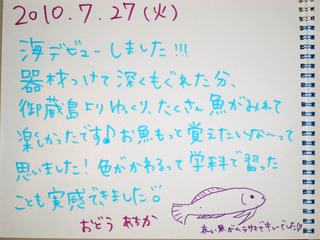 2010.7.27(火)
海デビューしました!!!
器材つけて深くもぐれた分、
御蔵島よりゆっくり、たくさん魚がみれて
楽しかったです♪お魚もっと覚えたいな~って
思いました!色がかわるって学科で習った
ことも実感できました
おどう あちか
赤い魚がムラサキでキレーでした